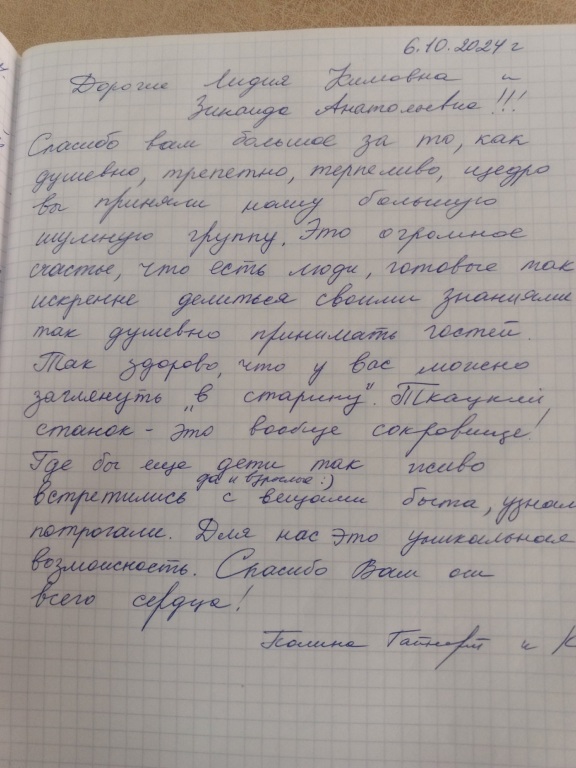 6.10.2024 г
Дорогие Лидия Кимовна и
Зинаида Анатольевна!!!
Спасибо вам большое за то, как
душевно, трепетно, терпеливо, щедро
вы приняли нашу большую
шумную группу. Это огромное
счастье, что есть люди, готовые так
искренне делиться своими знаниями
так душевно принимать гостей.
Так здорово, что у вас можно
заглянуть "в старину". Ткацкий
станок - это вообще сокровище!
Где бы еще дети так живо
да и взрослые :)
встретились с вещами быта, узнали
потрогали. Для нас это уникальная
возможность. Спасибо Вам от
всего сердца!
Полина и К